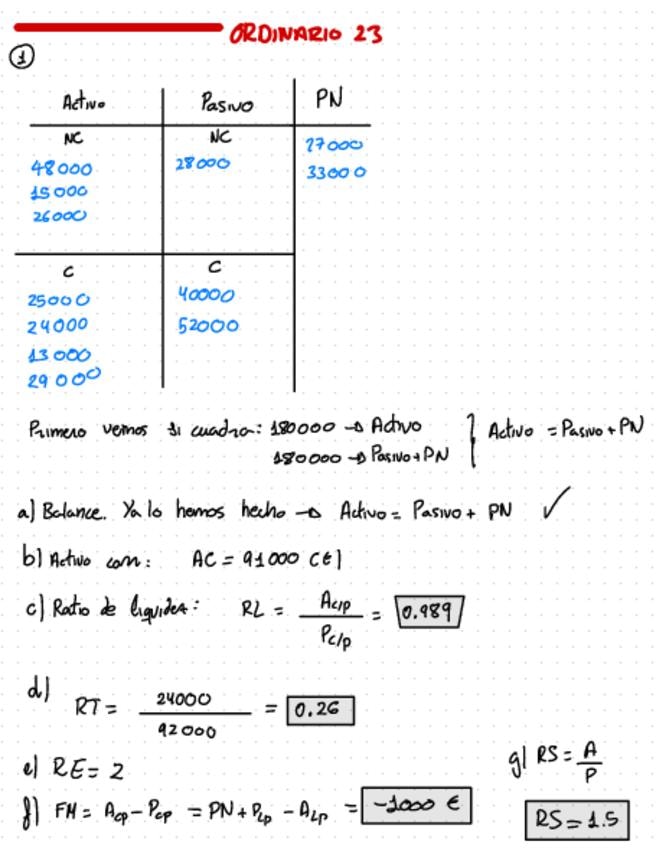 ORDINARIO 23
1
Activo Pasivo PN
NC NC 27000
48000 28000 33000
15000
26000
C C
25000 40000
24000 52000
13 000
29 000
Primero vemos si cuadra: 180000 → Activo } Activo = Pasivo + PN
180000 → Pasivo + PN
a) Balance. Ya lo hemos hecho → Activo = Pasivo + PN ✓
b) Activo corr: AC = 91000 (€)
c) Ratio de liquidez: RL = Ac/p / Pc/p = 0.989
d) RT = 24000 / 92000 = 0.26
e) RE = 2
f) FM = Acp - Pcp = PN + PLp - ALp = -1000 €
g) RS = A / P
RS = 1.5